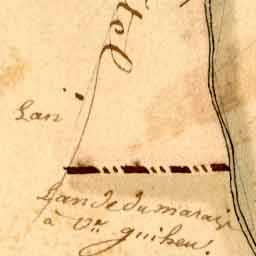 tel
Lan
Lande du marais
à Vve guiheu.